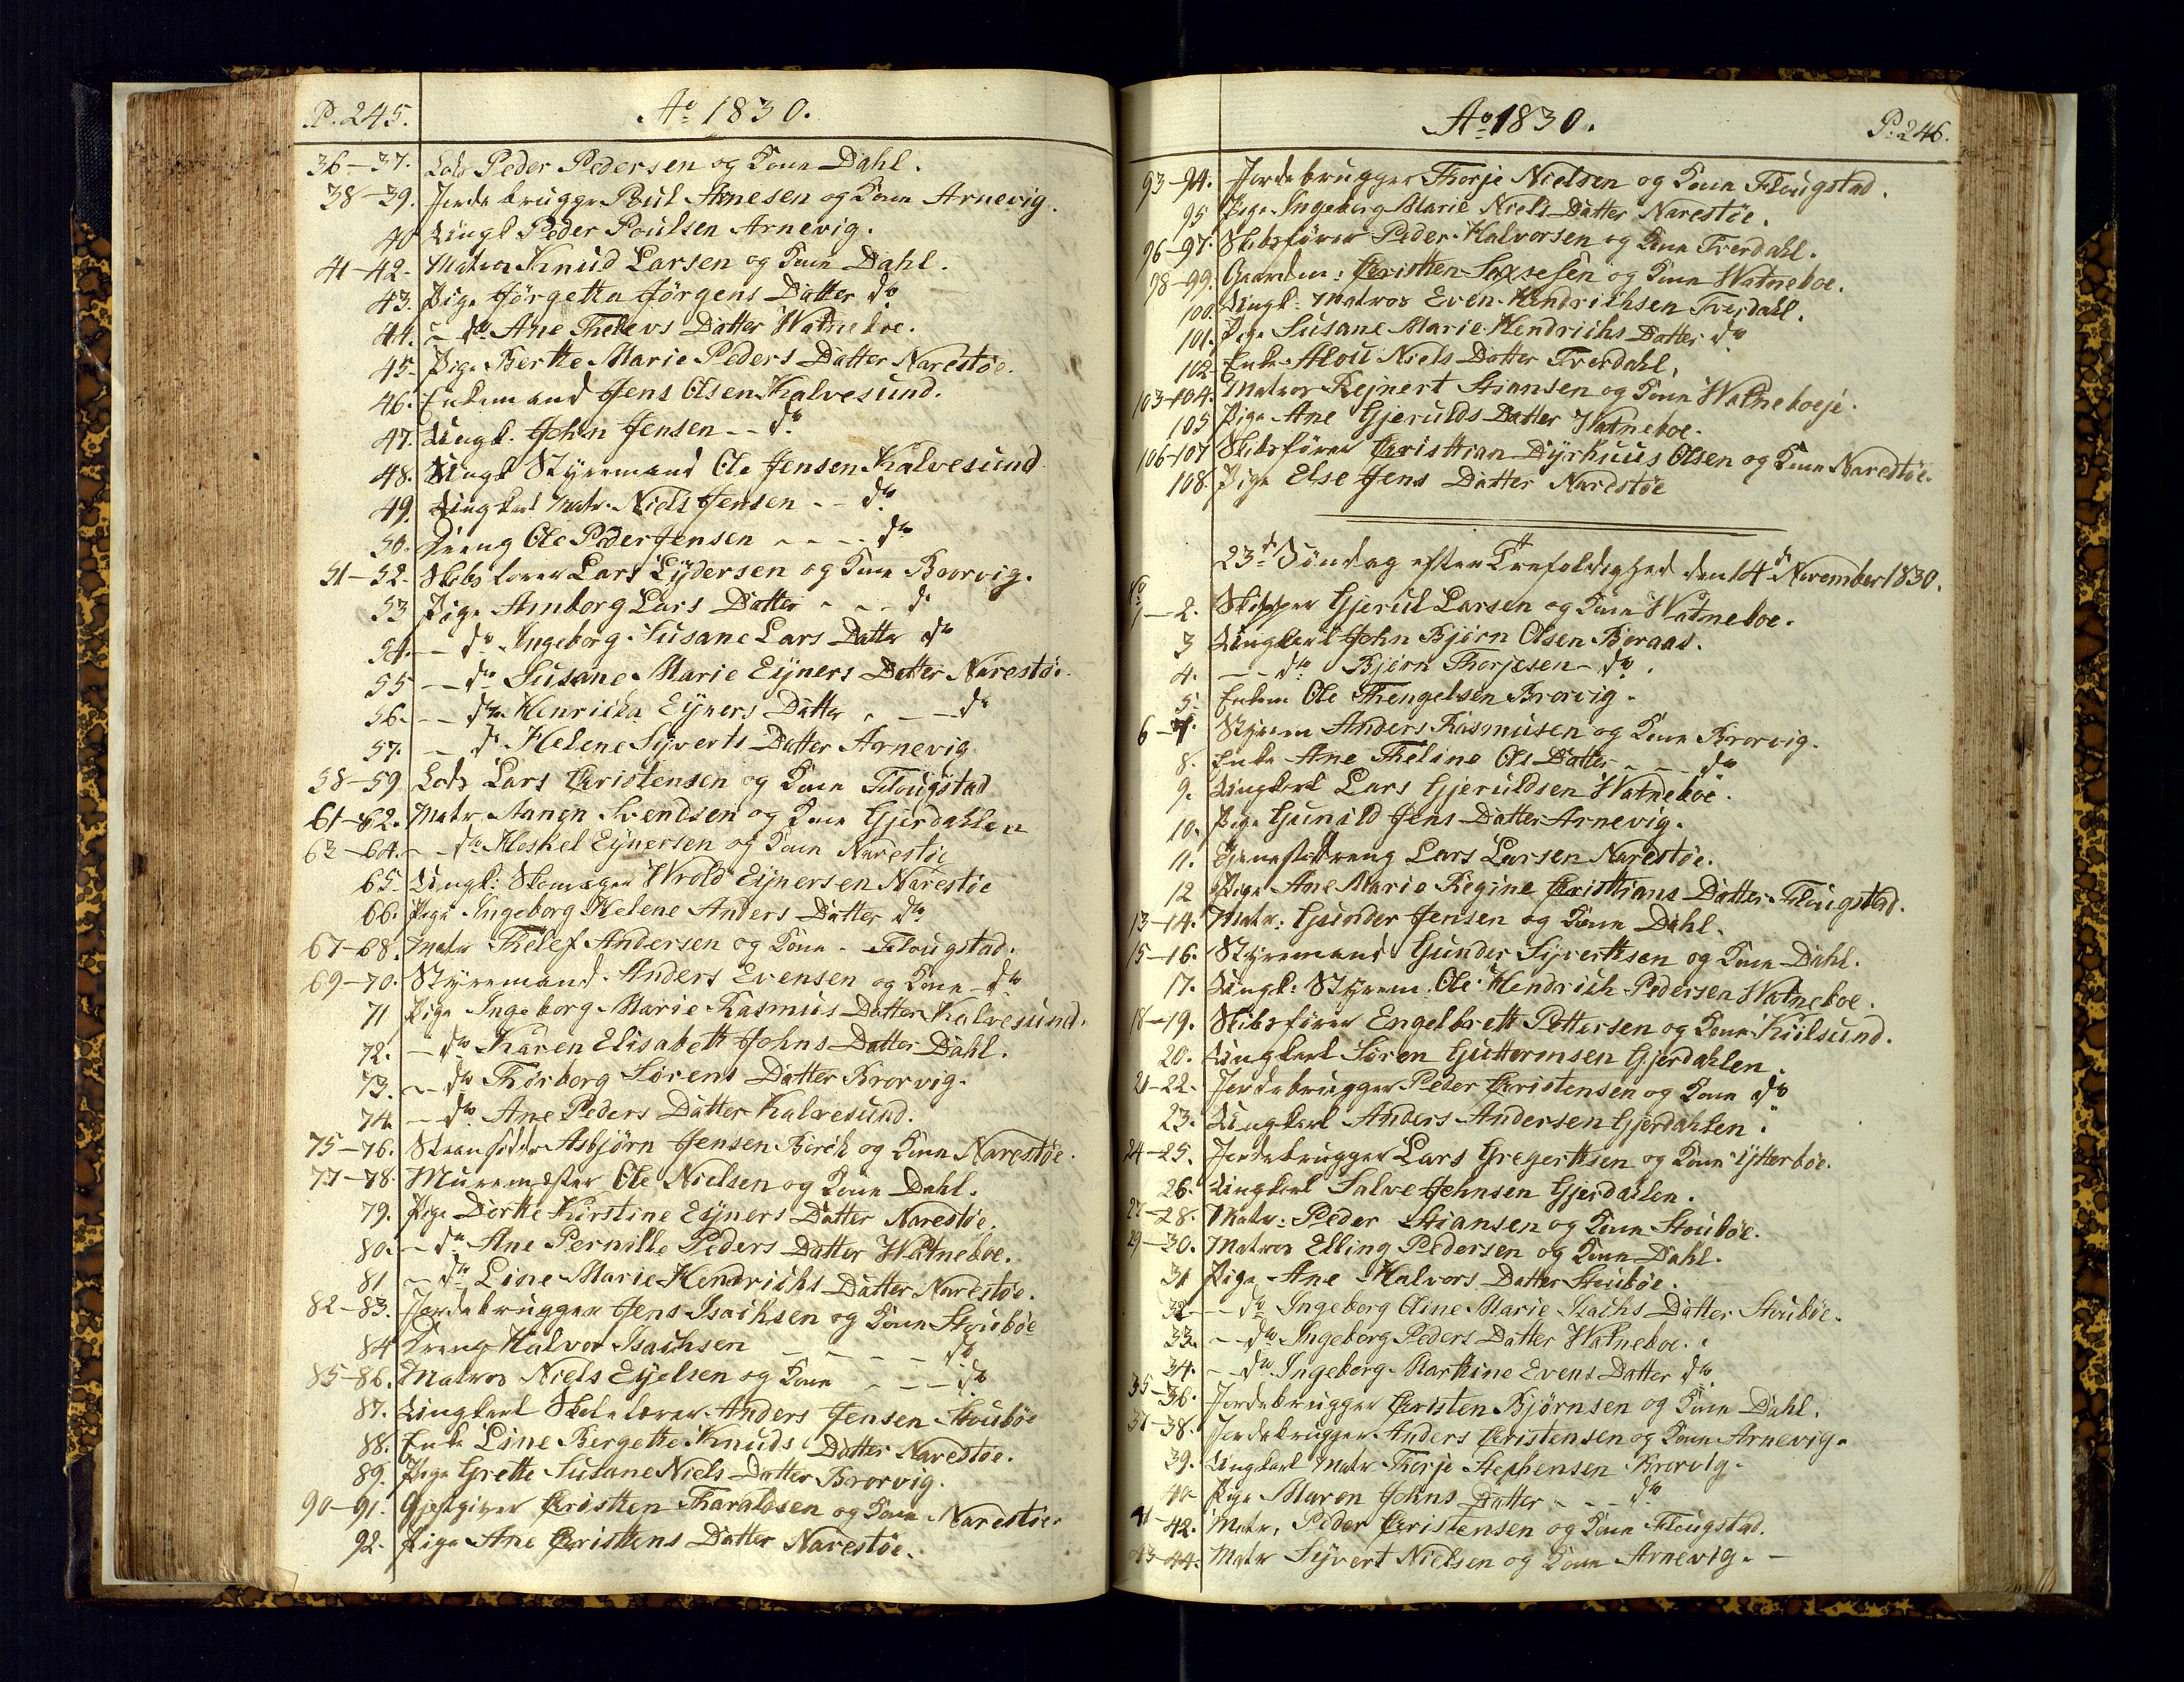 P. 245.
Ao 1830.
36-37. Lods Peder Pedersen og Kone Dahl.
38-39. Jordebrugger Poul Arnesen og Kone Arnevig.
40 Ungk Peder Poulsen Arnevig.
41-42. Matros Knud Larsen og Kone Dahl.
43. Pige Jörgetta Jörgens Datter do
44. - do Ane Thelevs Datter Watneboe.
45. Pige Berthe Marie Peders Datter Narestöe.
46. Enkemand Jens Olsen Kalvesund.
47. Ungk. John Jensen - - do
48. Ungk Styremand Ole Jensen Kalvesund
49. Ungkarl Matr. Niels Jensen - - do
50. Dreng Ole Peder Jensen - - - - do
51-52. Skibsförer Lars Lydersen og Kone Brorvig.
53 Pige Amborg Lars Datter - - - do
54. - - do Ingeborg Susane Lars Datter do
55 - - do Susane Marie Eyners Datter Narestöe.
56. - - do Henricha Eyners Datter - - - do
57. - do Helene Syverts Datter Arnevig
58-59 Lods Lars Christensen og Kone Flougstad
61-62. Matr. Aanen Svendsen og Kone Gjerdahlen
63-64. - - do Aleskel Eynersen og Kone Narestöe
65. Ungk: Skomager Wrold Eynersen Narestöe
66. Pige Ingeborg Helene Anders Datter do
67-68. Matr Thelef Andersen og Kone - Flougstad.
69-70. Styremand Anders Evensen og Kone - do
71 Pige Ingeborg Marie Rasmus Datter Kalvesund.
72. - do Karen Elisabeth Johns Datter Dahl.
73. - do Thorborg Sörens Datter Brorvig.
74. - do Ane Peders Datter Kalvesund.
75-76. Strandsidder Asbjörn Jensen Birch og Kone Narestöe.
77-78. Muremester Ole Nielsen og Kone Dahl.
79. Pige Dorthe Kirstine Eyners Datter Narestöe.
80. - do Ane Pernille Peders Datter Watneboe.
81 - do Line Marie Hendrichs Datter Narestöe.
82-83. Jordebrugger Jens Isachsen og Kone Stouböe
84 Dreng Halvor Isachsen - - - - do
85-86. Matros Niels Eyelsen og Kone - - - do
87. Ungkarl Skolelærer Anders Jensen Stouböe
88. Enke Line Bergethe Knuds Datter Narestöe.
89. Pige Grethe Susane Niels Datter Brorvig.
90-91. Gjestgiver Christen Tharaldsen og Kone Narestöe.
92. Pige Ane Christens Datter Narestöe.
Ao 1830.
P: 246.
93-94. Jordebrugger Thorje Nielsen og Kone Flougstad.
95 Pige Ingeborg Marie Niels Datter Narestöe.
96-97. Skibsförer Peder Halvorsen og Kone Tverdahl.
98-99. Gaardm: Christen Saxsesen og Kone Watneboe.
100. Ungk: Matros Even Hendrichsen Tverdahl.
101. Pige Susane Marie Hendrichs Datter do
102 Enke Alou Niels Datter Tverdahl.
103-104. Matros Rejnert Stiansen og Kone Watneboeje.
105 Pige Ane Gjerulds Datter Watneboe.
106-107 Skibsförer Christian Dyrhuus Olsen og Kone Narestöe.
108. Pige Else Jens Datter Narestöe
23de Söndag efter Trefoldighed den 14de November 1830.
No
1-2. Skipper Gjerul Larsen og Kone Watneboe.
3 Ungkarl John Björn Olsen Boraas.
4. - - do Björn Thorjesen - do
5. Enkem Ole Thengelsen Brorvig.
6-7. Styrem Anders Rasmusen og Kone Brorvig.
8. Enke Ane Theline Ols Datter - - - do
9. Ungkarl Lars Gjeruldsen Watneboe.
10. Pige Gunild Jens Datter Arnevig.
11. Tjenestedreng Lars Larsen Narestöe.
12 Pige Ane Marie Regine Christians Datter Flougstad.
13-14. Matr: Gunder Jensen og Kone Dahl.
15-16. Styremand Gunder Syvertsen og Kone Dahl.
17. Ungk: Styrem. Ole Hendrich Pedersen Watneboe.
18-19. Skibsförer Engelbreth Pettersen og Kone Kiilsund.
20. Ungkarl Sören Guttormsen Gjerdahlen.
21-22. Jordebrugger Peder Christensen og Kone do
23. Ungkarl Anders Andersen Gjerdahlen.
24-25. Jordebrugger Lars Gregertsen og Kone Ytterböe.
26. Ungkarl Salve Johnsen Gjerdahlen.
27-28. Matr: Peder Stiansen og Kone Stouböe.
29-30. Matros Elling Pedersen og Kone Dahl.
31 Pige Ane Halvors Datter Stouböe.
32 - - do Ingeborg Oline Marie Isachs Datter Stouböe.
33. - - do Ingeborg Peders Datter Watneboe.
34. - - do Ingeborg Marthine Evens Datter do
35-36. Jordebrugger Christen Björnsen og Kone Dahl.
37-38. Jordebrugger Anders Christensen og Kone Arnevig.
39. Ungkarl Matr Thorje Stephensen Brorvig.
40 Pige Maren Johns Datter - - - do
41-42. Matr. Peder Christensen og Kone Flougstad.
43-44. Matr Syvert Nielsen og Kone Arnevig. -